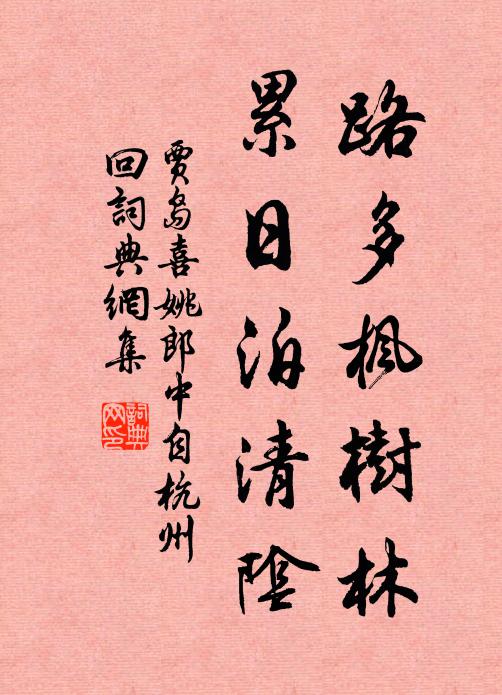 路多楓樹林
累日泊清陰
賈島喜姚郎中自杭州
回詞典網集
詞典
网印